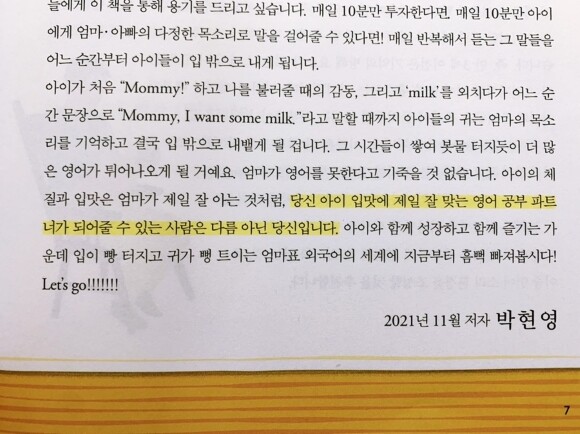 들에게 이 책을 통해 용기를 드리고 싶습니다. 매일 10분만 투자한다면, 매일 10분만 아이
에게 엄마·아빠의 다정한 목소리로 말을 걸어줄 수 있다면! 매일 반복해서 듣는 그 말들을
어느 순간부터 아이들이 입 밖으로 내게 됩니다.
아이가 처음 “Mommy!” 하고 나를 불러줄 때의 감동, 그리고 ‘milk’를 외치다가 어느 순
간 문장으로 “Mommy, I want some milk.”라고 말할 때까지 아이들의 귀는 엄마의 목소
리를 기억하고 결국 입 밖으로 내뱉게 될 겁니다. 그 시간들이 쌓여 봇물 터지듯이 더 많
은 영어가 튀어나오게 될 거예요. 엄마가 영어를 못한다고 기죽을 것 없습니다. 아이의 체
질과 입맛은 엄마가 제일 잘 아는 것처럼, 당신 아이 입맛에 제일 잘 맞는 영어 공부 파트
너가 되어줄 수 있는 사람은 다름 아닌 당신입니다. 아이와 함께 성장하고 함께 즐기는 가
운데 입이 빵 터지고 귀가 뻥 트이는 엄마표 외국어의 세계에 지금부터 흠뻑 빠져봅시다!
Let's go!!!!!!!
2021년 11월 저자 박현영
7